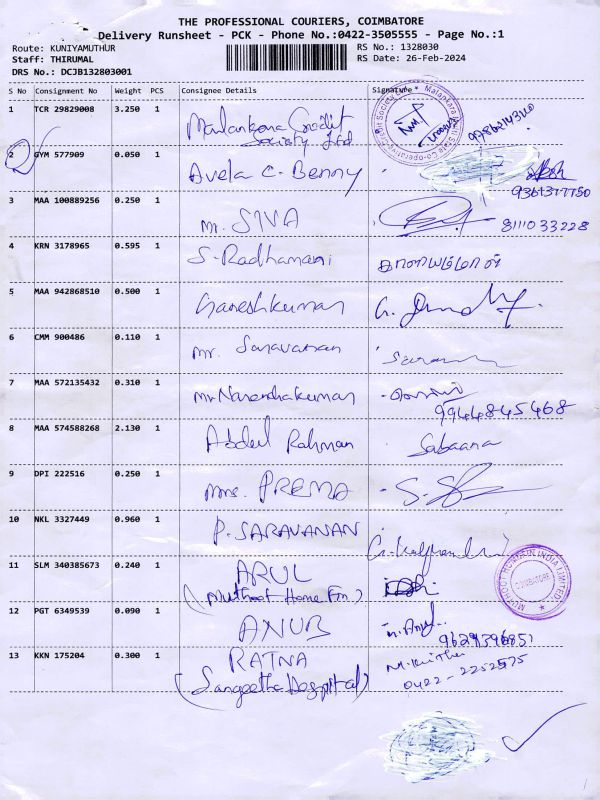 THE PROFESSIONAL COURIERS, COIMBATORE
Delivery Runsheet - PCK - Phone No.:0422-3505555 - Page No.:1
Route: KUNIYAMUTHUR
Staff: THIRUMAL
DRS No.: DCJB132803001
RS No.: 1328030
RS Date: 26-Feb-2024
S No Consignment No Weight PCS Consignee Details Signature
1 TCR 29829008 3.250 1 Malankara Credit
Society Ltd
2 GYM 577909 0.050 1 Avela C. Benny
9361377750
3 MAA 100889256 0.250 1 Mr. SIVA 8111033228
4 KRN 3178965 0.595 1 S. Radhamani
5 MAA 942868510 0.500 1 Ganeshkumar
6 CMM 900486 0.110 1 Mr. Saravanan
7 MAA 572135432 0.310 1 Mr Narendhakumar
9944845468
8 MAA 574588268 2.130 1 Abdul Rahman Sabaana
9 DPI 222516 0.250 1 Mrs. PREMA
10 NKL 3327449 0.960 1 P. SARAVANAN
11 SLM 340385673 0.240 1 ARUL
(Muthoot Home Fin)
MUTHOOT HOMEFIN INDIA LIMITED
COIMBATORE
12 PGT 6349539 0.090 1 ANUB
9629396851
13 KKN 175204 0.300 1 RATNA
(Sangeetha Hospital)
0422-2252575